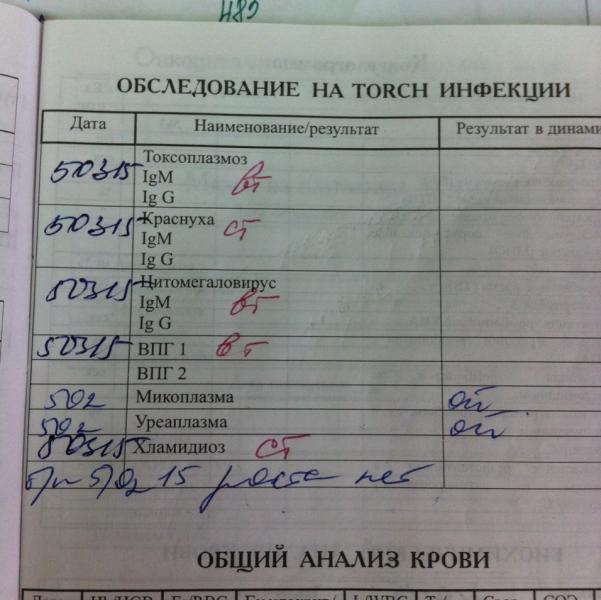 485
ОБСЛЕДОВАНИЕ НА TORCH ИНФЕКЦИИ
Дата Наименование/результат Результат в динами
50315 Токсоплазмоз
IgM вт
Ig G
50315 Краснуха ст
IgM
Ig G
50315 Цитомегаловирус
IgM вт
Ig G
50315 ВПГ 1 вт
ВПГ 2
502 Микоплазма
502 Уреаплазма
50315 Хламидиоз ст
15 роста нет
ОБЩИЙ АНАЛИЗ КРОВИ